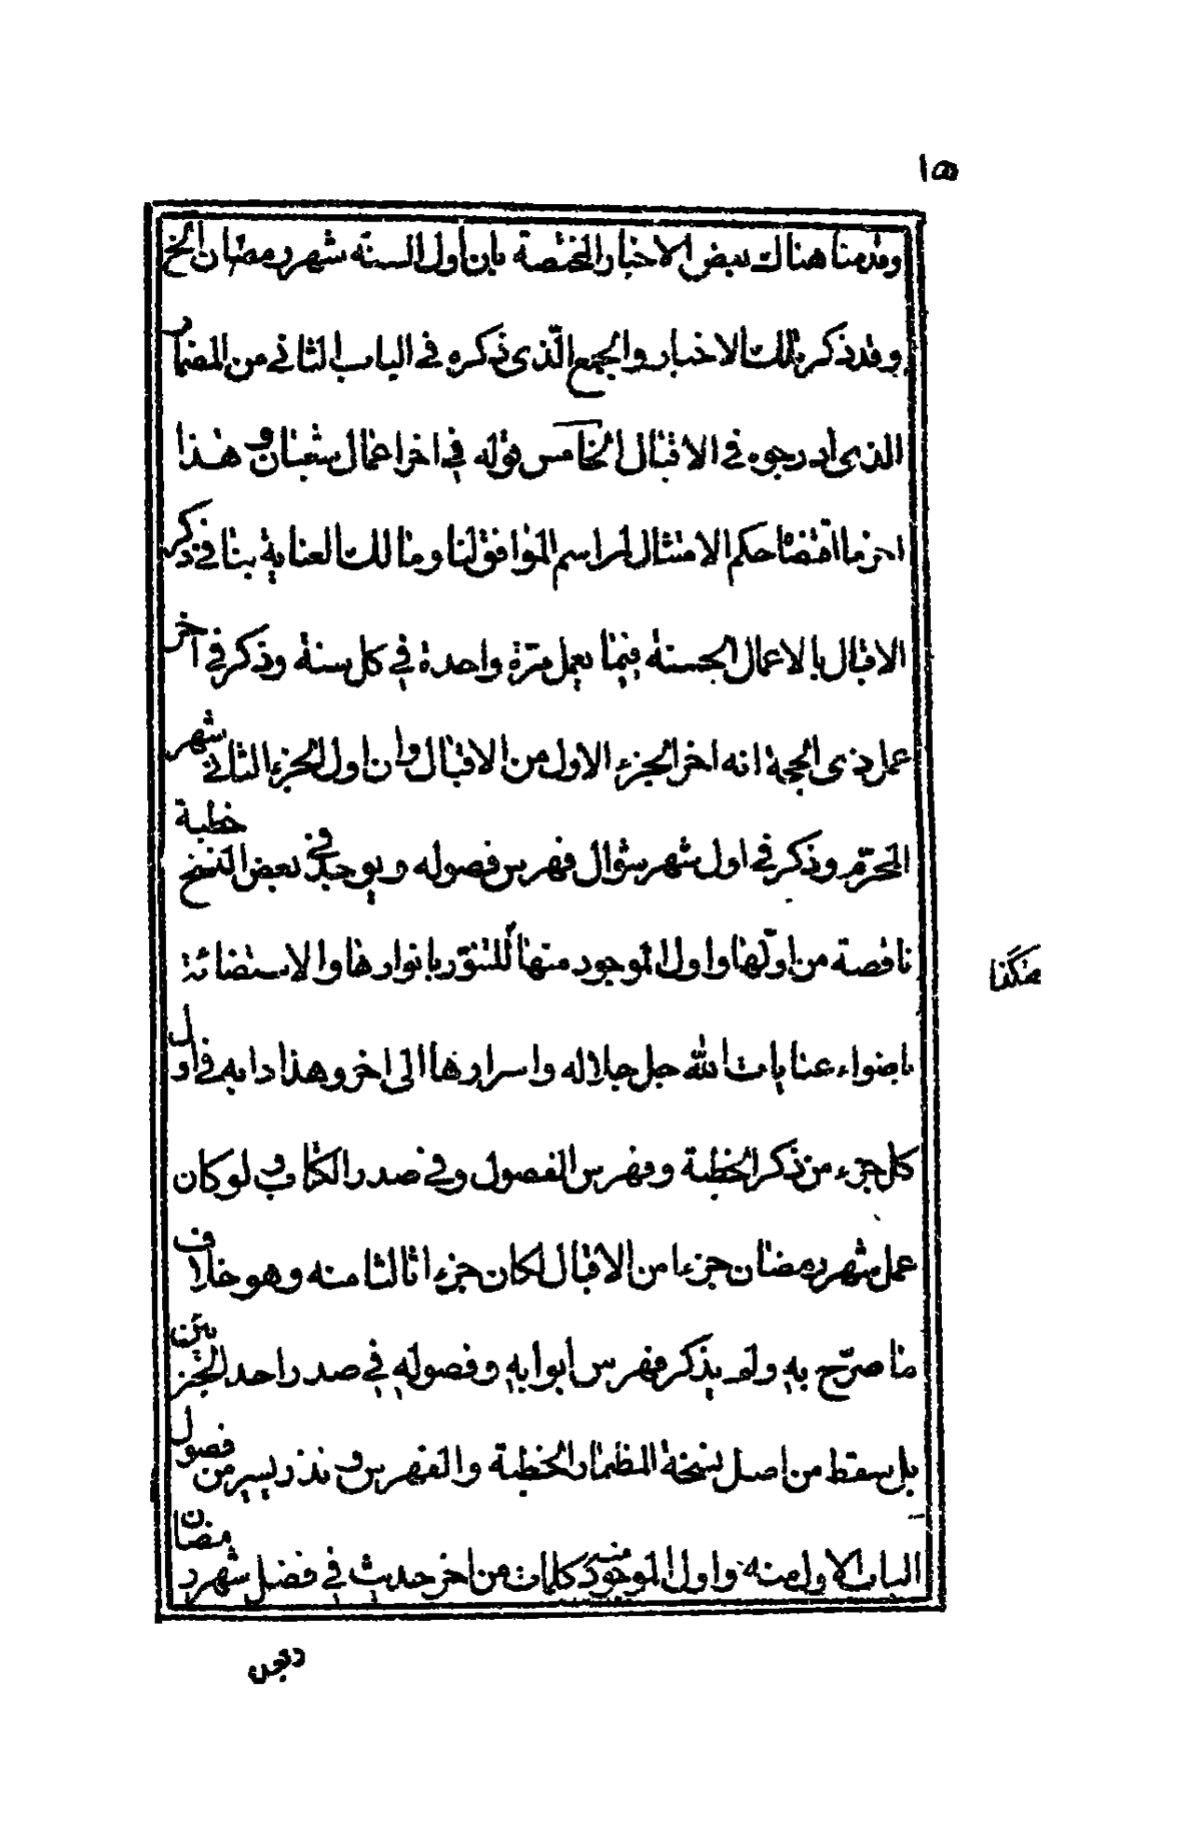 ١٥
وقدمنا هناك بعض الاخبار المختصة بان اول السنة شهر رمضان الخ
وقد ذكر تلك الاخبار والجمع الّذى ذكره في الباب الثاني من المضمار
الذى أدرجوه في الاقبال الخامس قوله في اخر اعمال شعبان وهذا
اخر ما اقتضاه حكم الامتثال لمراسم الموافق لنا ومالك العناية بنا في ذكر
الاقبال بالاعمال الحسنة فيما يعمل مرّة واحدة في كل سنة وذكر في آخر
عمل ذى الحجة انه اخر الجزء الاول من الاقبال وان اول الجزء الثاني شهر
المحرّم وذكر في اول شهر شوال فهرس فصوله ويوجد في بعض النسخ خطبة
ناقصة من اوّلها واول الموجود منها للتنوّر بانوارها والاستضائة
هكذا
باضواء عنايات الله جل جلاله واسرارها الى اخر وهذا دابه في اول
كل جزء من ذكر الخطبة وفهرس الفصول وفي صدر الكتاب ولو كان
عمل شهر رمضان جزءا من الاقبال لكان جزءا ثالثا منه وهو خلاف
ما صرّح به ولم يذكر فهرس ابوابه وفصوله في صدر احد الجزئين
بل سقط من اصل نسخة المظمار الخطبة والفهرس ونذر يسير من فصول
الباب الاول منه واول الموجود منه كلمات من اخر حديث في فضل شهر رمضان